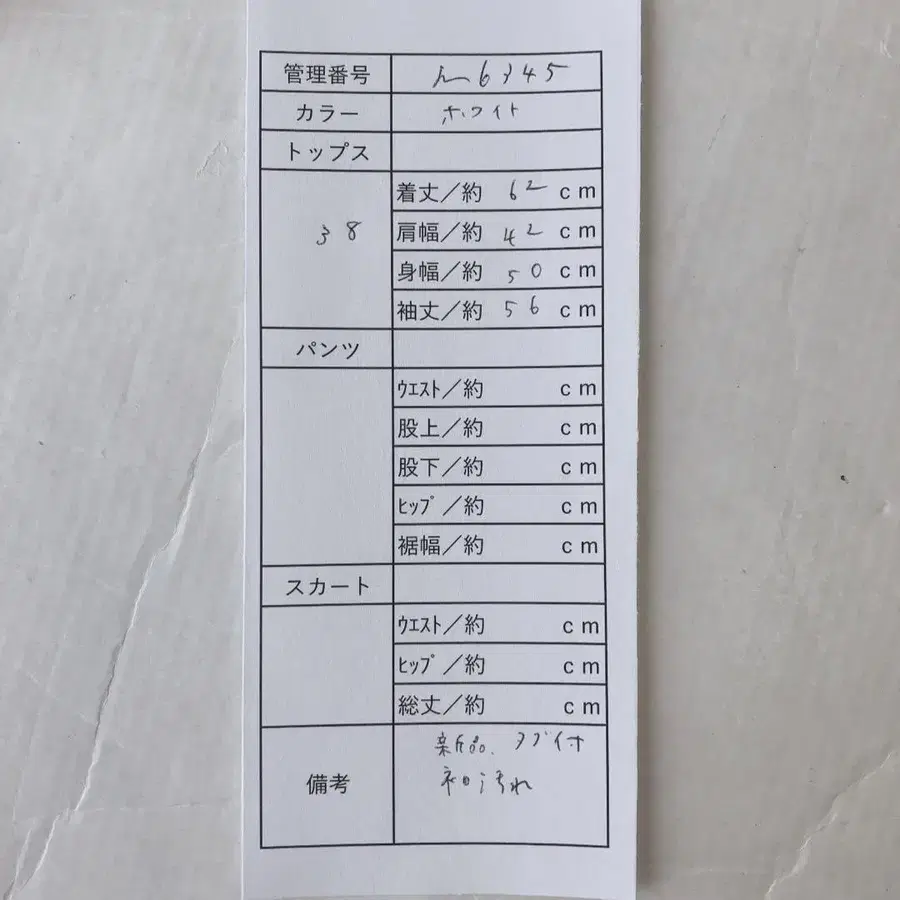 管理番号 m6345
カラー ホワイト
トップス
38
着丈／約 62 cm
肩幅／約 42 cm
身幅／約 50 cm
袖丈／約 56 cm
パンツ
ウエスト／約 cm
股上／約 cm
股下／約 cm
ヒップ／約 cm
裾幅／約 cm
スカート
ウエスト／約 cm
ヒップ／約 cm
総丈／約 cm
備考
新品、タグ付
袖汚れ